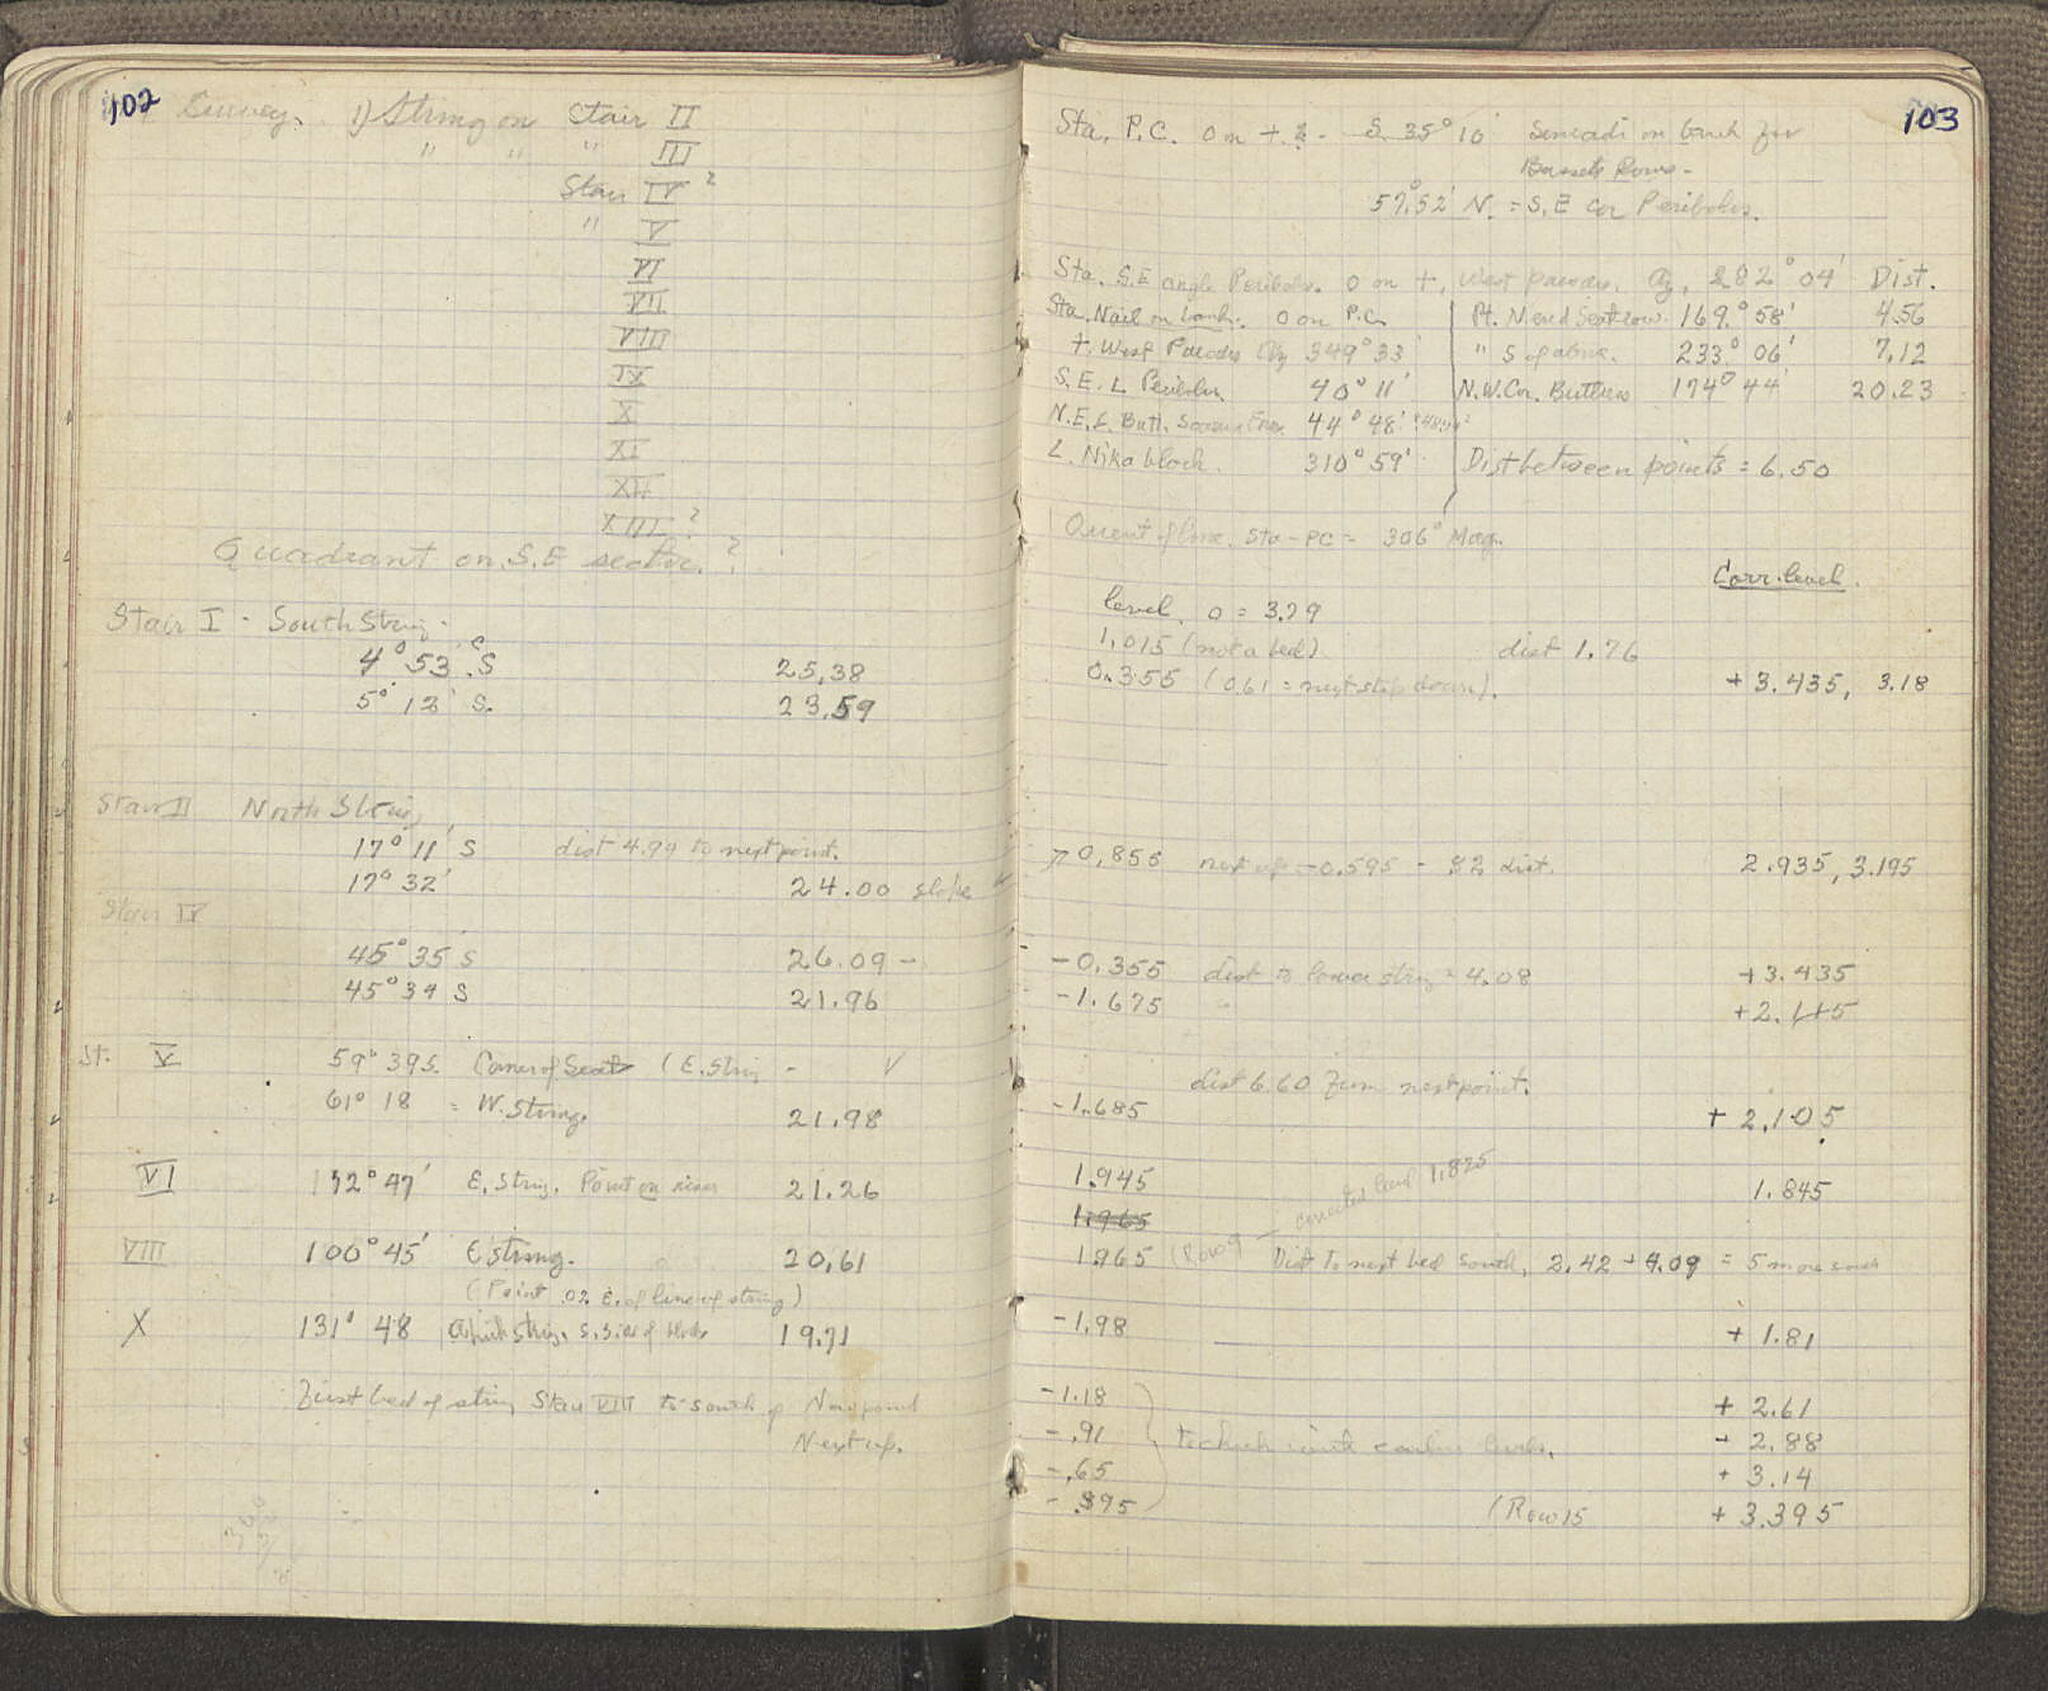 102 Survey. 1) String on Stair II
" " " III
Stair IV ?
" V
VI
VII
VIII
IX
X
XI
XII
XIII ?
Quadrant on S.E sector. ?
Stair I - South String -
4° 53' S 25,38
5° 12' S. 23.59
Stair II North String
17° 11' S dist 4.99 to next point.
17° 32' 24.00 slope
Stair IV
45° 35 S 26.09 -
45° 34 S 21.96
St. V 59° 39 S. Corner of Seat (E. String - V
61° 18 = W. String. 21.98
VI 72° 47' E. String. Point on riser 21.26
VIII 100° 45' E string. 20,61
(Point .02 E. of line of string)
X 131° 48 String. S. Side of block 19.71
First bed of string Stair VIII to south of
Next up.
103
Sta. P.C. 0 on +. 2 - S. 35° 10' on bank for
Bassets Rows -
57° 52' N. = S.E cor Peribolos.
Sta. S.E angle Peribolos. 0 on +, West parodos. Az, 282° 04' Dist.
Sta. Nail on bank. 0 on P.C. Pt. N. end Seat row. 169.° 58' 4.56
+. West Parodos Az 349° 33' " S of above. 233° 06' 7,12
S. E. L Peribolos 40° 11' N.W. Cor. Buttress 174° 44' 20.23
N. E. L. Butt. 44° 48'
L. Nika block. 310° 59' Dist between points = 6.50
Orient of line. Sta - PC = 306° Mag.
Corr. level.
level. 0 = 3.79
1.015 (not a bed) dist 1.76
0.355 (0.61 = next step down). + 3.435, 3.18
0,855 next up - 0.595 - 82 dist. 2.935, 3.195
- 0.355 dist to lower string = 4.08 + 3.435
- 1.675 " + 2.115
dist 6.60 from next point.
- 1.685 + 2.105
1.945 1.845
corrected level 1.825
1.965
1.965 (Row 9 Dist to next bed south, 2.42 + 4.09 = 5 more south
- 1.98 + 1.81
- 1.18 + 2.61
- .91 to check with earlier levels. + 2.88
- .65 + 3.14
- .395 (Row 15 + 3.395